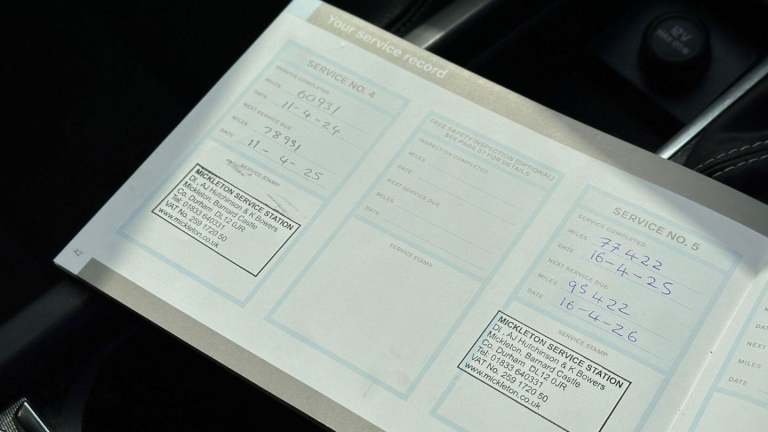 Your service record
SERVICE NO. 4
SERVICE COMPLETED
MILES 60931
DATE 11-4-24
NEXT SERVICE DUE
MILES 78931
DATE 11-4-25
SERVICE STAMP
MICKLETON SERVICE STATION
DI, AJ Hutchinson & K Bowers
Mickleton, Barnard Castle
Co. Durham DL12 0JR
Tel: 01833 640331
VAT No. 259 1720 50
www.mickleton.co.uk
42
FREE SAFETY INSPECTION (OPTIONAL)
SEE PAGE 27 FOR DETAILS
INSPECTION COMPLETED
MILES
DATE
NEXT SERVICE DUE
MILES
DATE
SERVICE STAMP
SERVICE NO. 5
SERVICE COMPLETED
MILES 77422
DATE 16-4-25
NEXT SERVICE DUE
MILES 95422
DATE 16-4-26
SERVICE STAMP
MICKLETON SERVICE STATION
DI, AJ Hutchinson & K Bowers
Mickleton, Barnard Castle
Co. Durham DL12 0JR
Tel: 01833 640331
VAT No. 259 1720 50
www.mickleton.co.uk
DATE
NEXT
MILES
DATE
12V